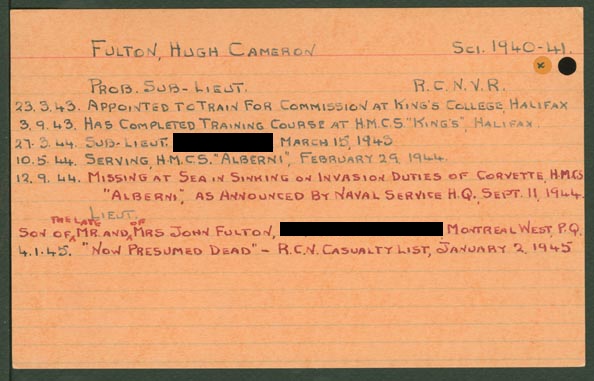 FULTON, HUGH CAMERON SCI. 1940-41.
PROB. SUB-LIEUT. R.C.N.V.R.
23.3.43. APPOINTED TO TRAIN FOR COMMISSION AT KING'S COLLEGE, HALIFAX
3.9.43. HAS COMPLETED TRAINING COURSE AT H.M.C.S. "KING'S", HALIFAX.
27.3.44. SUB-LIEUT. MARCH 15, 1943
10.5.44. SERVING, H.M.C.S. "ALBERNI", FEBRUARY 29, 1944.
12.9.44. MISSING AT SEA IN SINKING ON INVASION DUTIES OF CORVETTE, H.M.C.S
"ALBERNI", AS ANNOUNCED BY NAVAL SERVICE H.Q., SEPT. 11, 1944.
LIEUT.
SON OF THE LATE MR. AND OF MRS JOHN FULTON, MONTREAL WEST, P.Q.
4.1.45. "NOW PRESUMED DEAD" - R.C.N. CASUALTY LIST, JANUARY 2, 1945